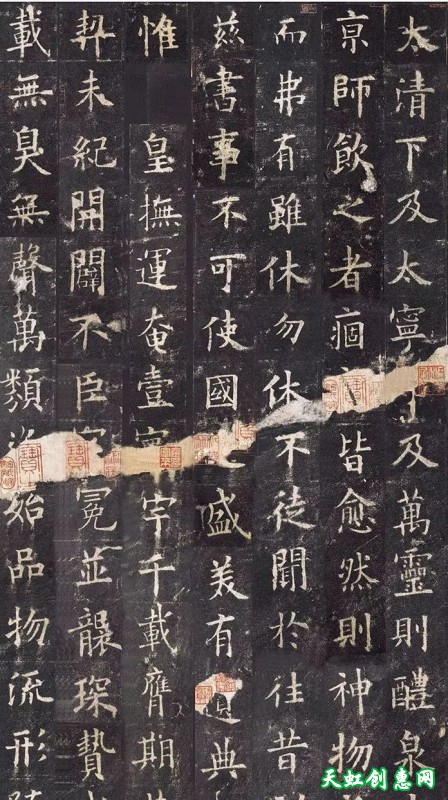 太清下及太寧及萬靈則醴泉
京師飲之者痼皆愈然則神物
而弗有雖休勿休不徒聞於往昔
茲書事不可使國盛美有典
惟皇撫運奄壹宇千載膺期
契未紀開闢不臣冕並襲琛贄
載無臭無聲萬類始品物流形
天虹创惠网